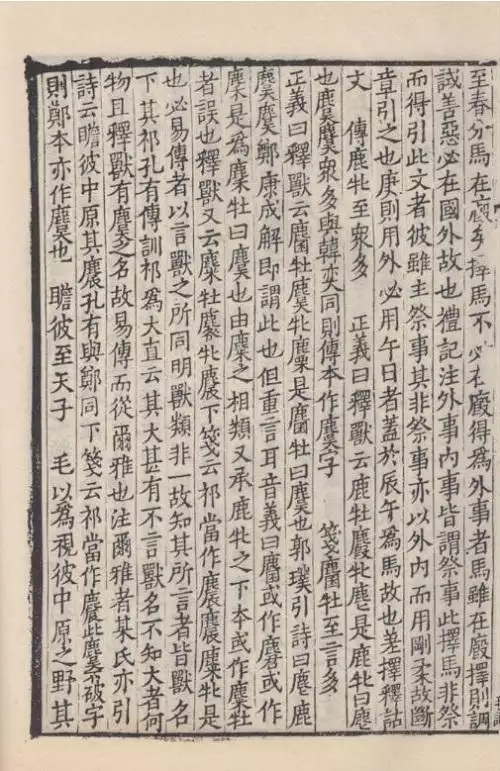 至春分馬在廄多擇馬不必在廄得為外事者馬雖在廄擇則調
誠善惡必在國外故也禮記注外事內事皆謂祭事此擇馬非祭
而得引此文者彼雖主祭事其非祭事亦以外內而用剛柔故斷
章引之也庚則用外必用午日者蓋於辰午為馬故也差擇釋詁
文 傳鹿牝至衆多 正義曰釋獸云鹿牡麚牝麀是鹿牝曰麀
也麌麌衆多與韓奕同則傳本作麌字 箋麕牡至言多
正義曰釋獸云麕牡麌牝麜是麕牡曰麌也郭璞引詩曰麀鹿
麌麌鄭康成解即謂此也但重言耳音義曰麕或作麏或作
麇是為麇牡曰麌也由麇之相類又承鹿牝之下本或作麇牡
者誤也釋獸又云麋牡麔牝麎下箋云祁當作麎麎麋牝是
也必易傳者以言獸之所同明獸類非一故知其所言者皆獸名
下其祁孔有傳訓祁為大直云其大甚有不言獸名不知大者何
物且釋獸有麎之名故易傳而從爾雅也注爾雅者某氏亦引
詩云瞻彼中原其麎孔有與鄭同下箋云祁當作麎此麌不破字
則鄭本亦作麌也 瞻彼至天子 毛以為視彼中原之野其